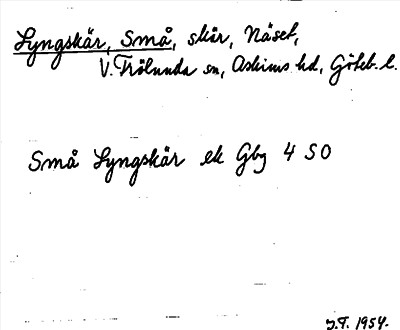 Lyngskär, Små, skär, Näset,
V. Frölunda sn, Askims hd, Göteb. l.
Små Lyngskär ek Gbg 4 SO
J.F. 1954.